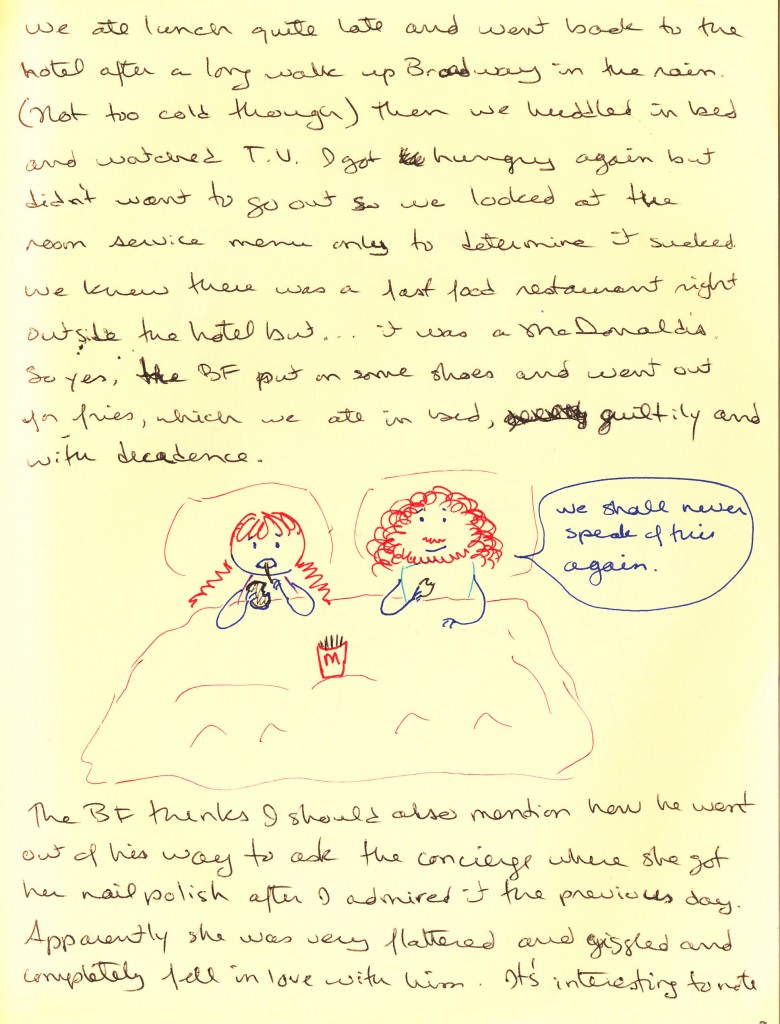 we ate lunch quite late and went back to the
hotel after a long walk up Broadway in the rain.
(Not too cold though) Then we huddled in bed
and watched T.V. I got hungry again but
didn't want to go out so we looked at the
room service menu only to determine it sucked
we knew there was a fast food restaurant right
outside the hotel but... it was a McDonald's.
So yes, the BF put on some shoes and went out
for fries, which we ate in bed, guiltily and
with decadence.
we shall never
speak of this
again.
M
The BF thinks I should also mention how he went
out of his way to ask the concierge where she got
her nail polish after I admired it the previous day.
Apparently she was very flattered and giggled and
completely fell in love with him. It's interesting to note